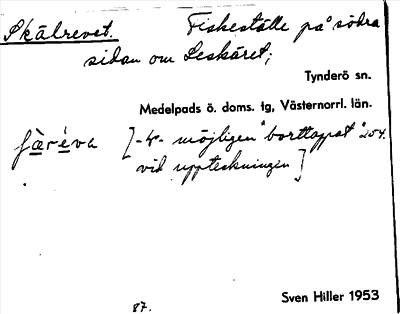 Skälrevet. Fiskeställe på södra
sidan om Leskäret;
Tynderö sn.
Medelpads ö. doms. tg, Västernorrl. län.
[-r- möjligen "borttappat"
vid uppteckningen]
87.
Sven Hiller 1953